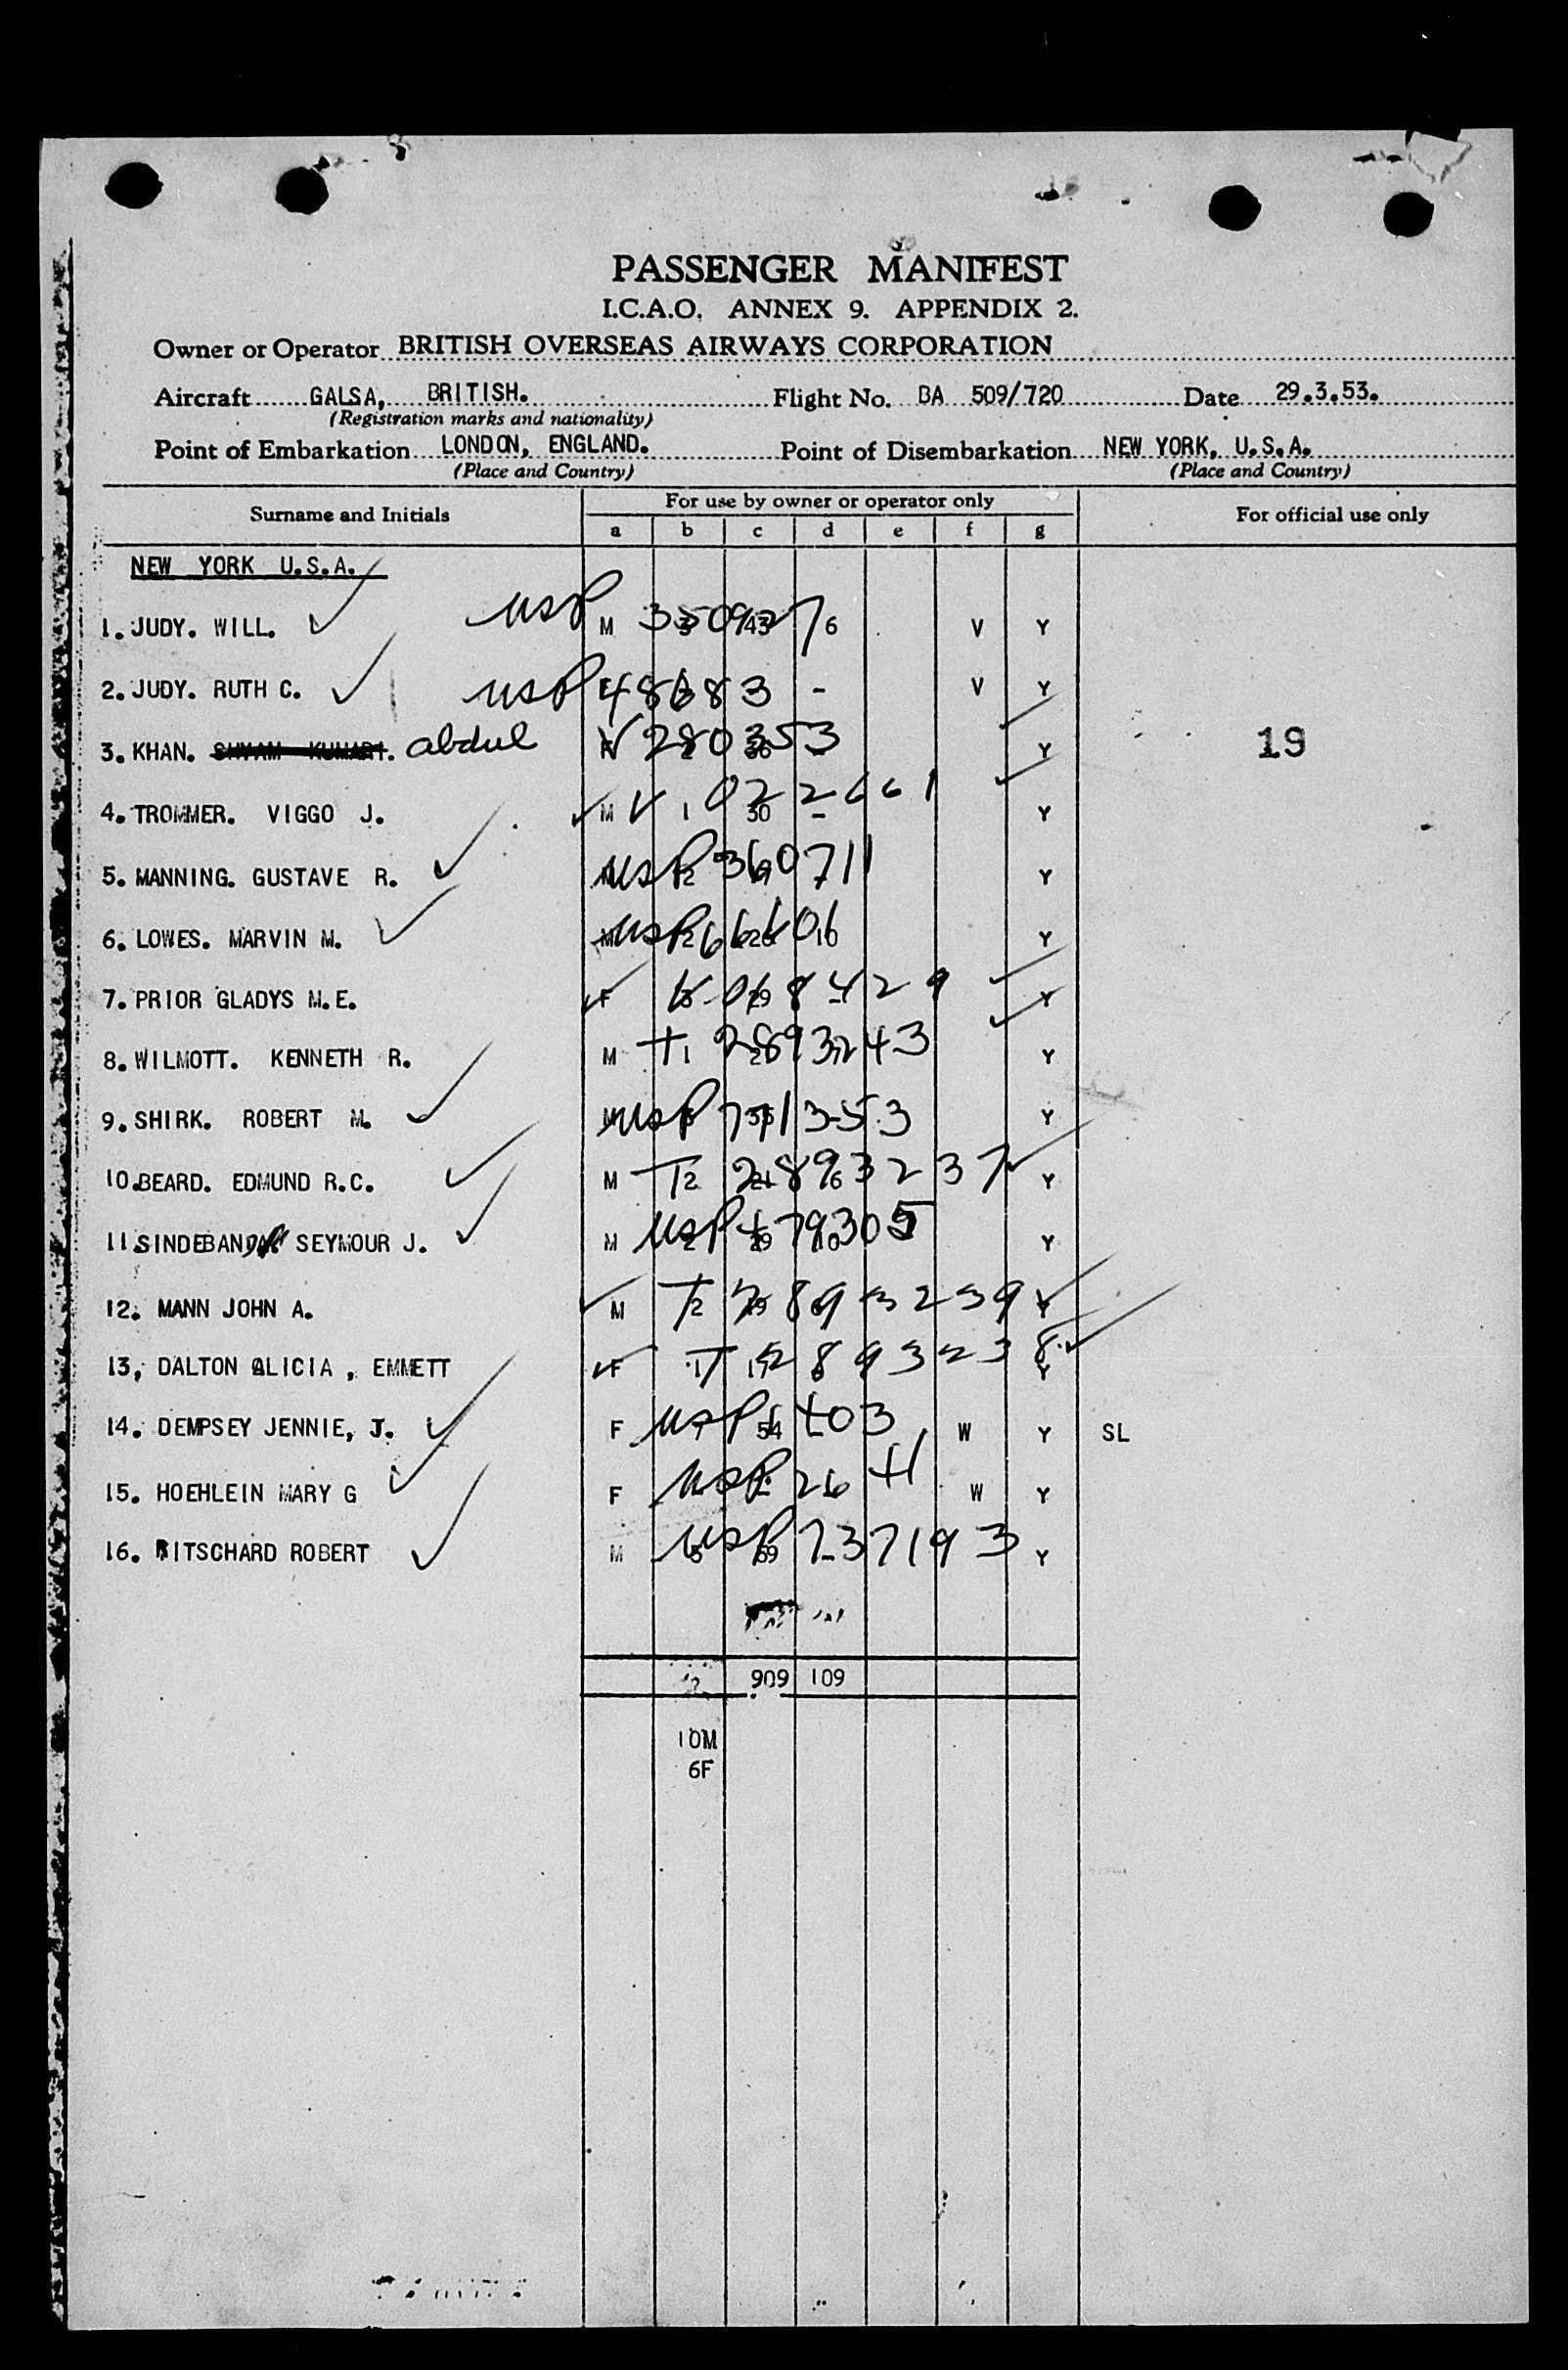 PASSENGER MANIFEST
I.C.A.O. ANNEX 9. APPENDIX 2.
Owner or Operator BRITISH OVERSEAS AIRWAYS CORPORATION
Aircraft GALSA, BRITISH. Flight No. BA 509/720 Date 29.3.53.
(Registration marks and nationality)
Point of Embarkation LONDON, ENGLAND. Point of Disembarkation NEW YORK, U.S.A.
(Place and Country) (Place and Country)
Surname and Initials For use by owner or operator only For official use only
a b c d e f g
NEW YORK U.S.A.
1. JUDY. WILL. USP M 3509276 43 6 V Y
2. JUDY. RUTH C. USP 48683 - V Y
3. KHAN. abdul V 280353 Y 19
4. TROMMER. VIGGO J. M V 1 022661 30 - Y
5. MANNING. GUSTAVE R. USP 360711 Y
6. LOWES. MARVIN M. USP 66606 Y
7. PRIOR GLADYS M.E. F 068429 Y
8. WILMOTT. KENNETH R. M T 1 2893243 Y
9. SHIRK. ROBERT M. USP 71353 Y
10. BEARD. EDMUND R.C. M T 2 2893237 Y
11. SEYMOUR J. M USP 479305 Y
12. MANN JOHN A. M T 2 2893239 Y
13, DALTON ALICIA , EMMETT F T 2893238 Y
14. DEMPSEY JENNIE, J. F USP 403 54 W Y SL
15. HOEHLEIN MARY G F USP 26 41 W Y
16. RITSCHARD ROBERT M USP 737193 59 - Y
909 109
10M
6F